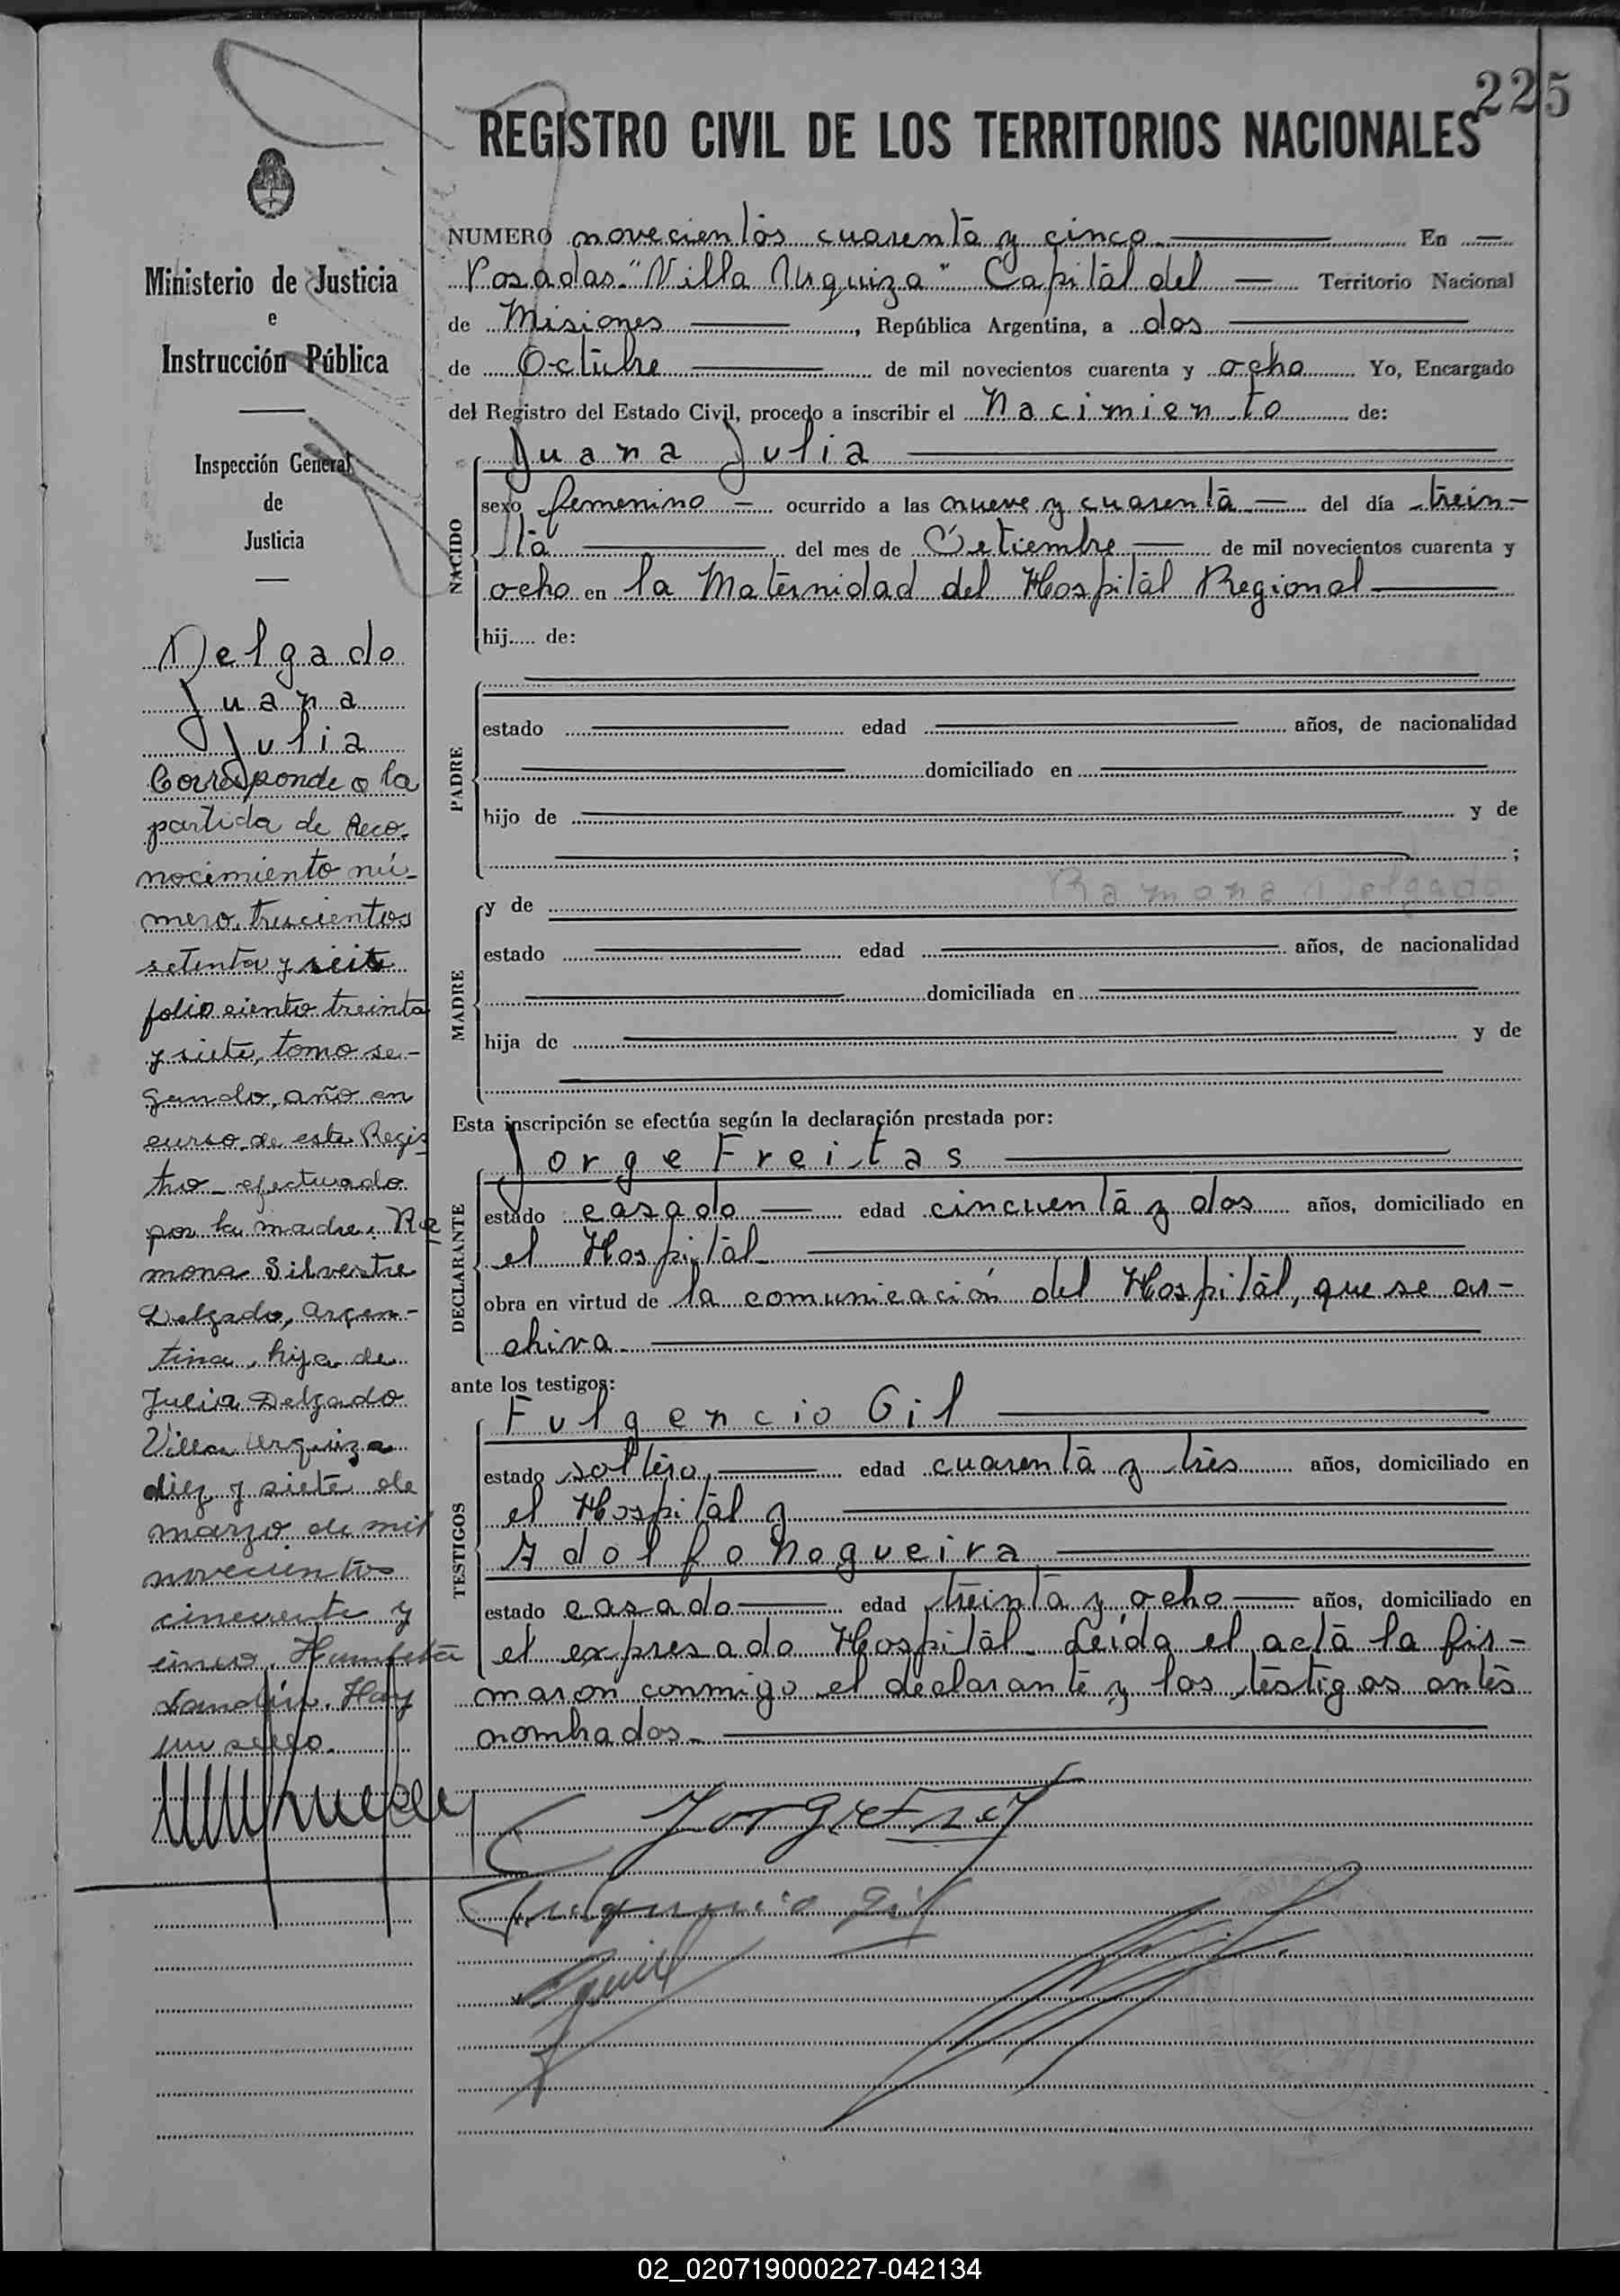 225
REGISTRO CIVIL DE LOS TERRITORIOS NACIONALES
Ministerio de Justicia
e
Instrucción Pública
Inspección General
de
Justicia
Delgado
Juana
Julia
Corresponde a la
partida de Reco-
nocimiento nú-
mero, trescientos
setenta y siete
folio ciento treinta
y siete, tomo se-
gundo, año en
curso de este Regis
tro - efectuado
por la madre: Ra
mona Silvestre
Delgado, argen-
tina, hija de
Julia Delgado
Villa Urquiza
diez y siete de
marzo de mil
novecientos
cincuenta y
cinco.
Hay
un sello.
NUMERO novecientos cuarenta y cinco. En
Posadas "Villa Urquiza" Capital del Territorio Nacional
de Misiones, República Argentina, a dos
de Octubre de mil novecientos cuarenta y ocho Yo, Encargado
del Registro del Estado Civil, procedo a inscribir el Nacimiento de:
NACIDO
Juana Julia
sexo femenino ocurrido a las nueve y cuarenta del día trein-
ta del mes de Setiembre de mil novecientos cuarenta y
ocho en la Maternidad del Hospital Regional
hij..... de:
PADRE
estado edad años, de nacionalidad
domiciliado en
hijo de y de
;
MADRE
Ramona Delgado
y de
estado edad años, de nacionalidad
domiciliada en
hija de y de
Esta inscripción se efectúa según la declaración prestada por:
DECLARANTE
Jorge Freitas
estado casado edad cincuenta y dos años, domiciliado en
el Hospital
obra en virtud de la comunicación del Hospital, que se ar-
chiva.
ante los testigos:
TESTIGOS
Fulgencio Gil
estado soltero, edad cuarenta y tres años, domiciliado en
el Hospital y
Adolfo Nogueira
estado casado edad treinta y ocho años, domiciliado en
el expresado Hospital. Leida el acta la fir-
maron conmigo el declarante y los testigos antes
nombrados.
Fulgencio Gil
02_020719000227-042134